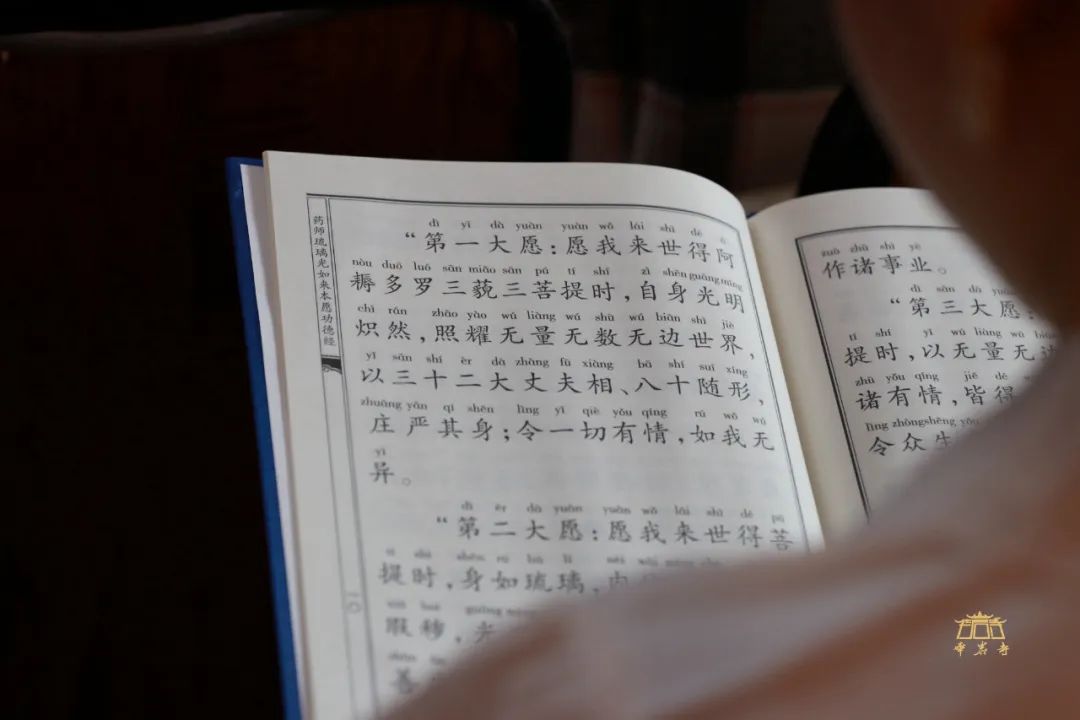 药师琉璃光如来本愿功德经
dì yī dà yuàn yuàn wǒ lái shì dé ā
“第一大愿：愿我来世得阿
nòu duō luó sān miǎo sān pú tí shí zì shēn guāng míng
耨多罗三藐三菩提时，自身光明
chì rán zhào yào wú liàng wú shù wú biān shì jiè
炽然，照耀无量无数无边世界，
yǐ sān shí èr dà zhàng fū xiàng bā shí suí xíng
以三十二大丈夫相、八十随形，
zhuāng yán qí shēn lìng yī qiè yǒu qíng rú wǒ wú
庄严其身；令一切有情，如我无
yì
异。
dì èr dà yuàn yuàn wǒ lái shì dé pú
“第二大愿：愿我来世得菩
tí shí shēn rú liú lí nèi
提时，身如琉璃，内
瑕秽，光
善
一〇
zuò zhū shì yè
作诸事业。
dì sān dà yuàn
“第三大愿：
tí shí yǐ wú liàng wú biān
提时，以无量无边
zhū yǒu qíng jiē dé
诸有情，皆得
lìng zhòng shēng
令众生